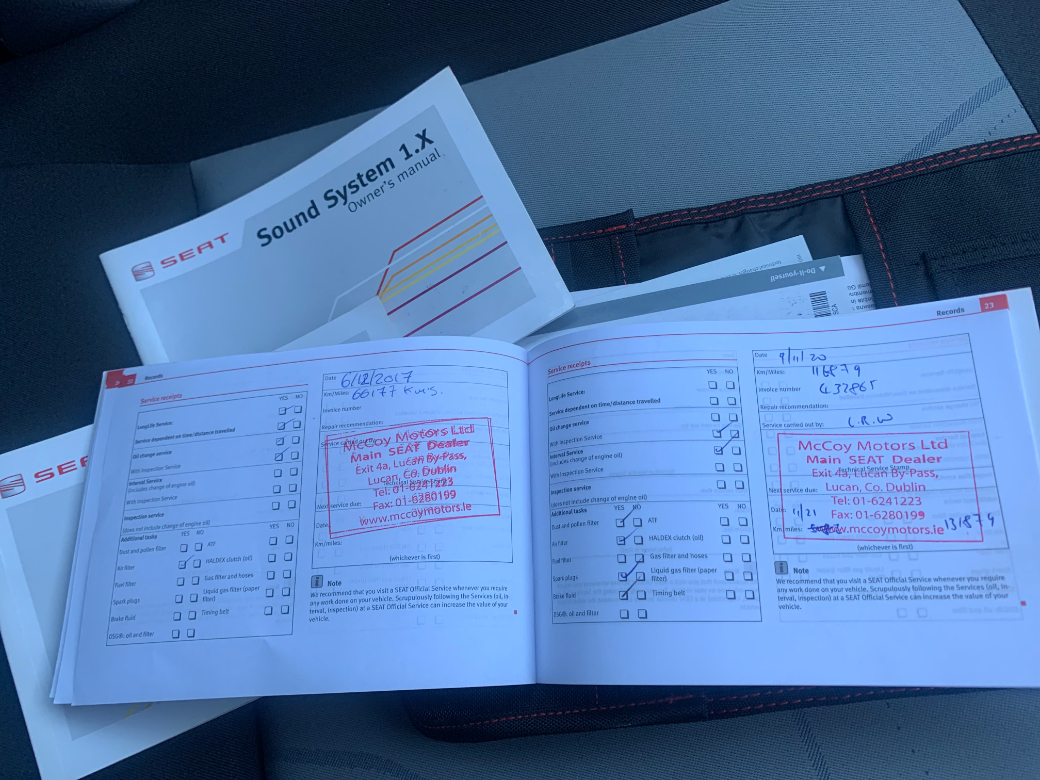 Sound System 1.X
Owner's manual
SEAT
Do-it-yourself
SEA
Records
Service receipts
YES NO
LongLife Service:
Service dependent on time/distance travelled
Oil change service
With Inspection Service
Internal Service
(includes change of engine oil)
With Inspection Service
Inspection service
(does not include change of engine oil)
Additional tasks
YES NO
YES NO
Dust and pollen filter
ATF
Air filter
HALDEX clutch (oil)
Fuel filter
Gas filter and hoses
Spark plugs
Liquid gas filter (paper
filter)
Brake fluid
Timing belt
DSG®: oil and filter
Date
6/12/2017
Km/Miles:
66177 Kms.
Invoice number
Repair recommendation:
McCoy Motors Ltd
Main SEAT Dealer
Exit 4a, Lucan By-Pass,
Lucan, Co. Dublin
Tel: 01-6241223
Fax: 01-6280199
www.mccoymotors.ie
Next service due:
Date:
Km/miles:
(whichever is first)
Note
We recommend that you visit a SEAT Official Service whenever you require
any work done on your vehicle. Scrupulously following the Services (oil, in-
terval, inspection) at a SEAT Official Service can increase the value of your
vehicle.
Records
23
Service receipts
YES NO
LongLife Service:
Service dependent on time/distance travelled
Oil change service
With Inspection Service
Internal Service
(includes change of engine oil)
With Inspection Service
Inspection service
(does not include change of engine oil)
Additional tasks
YES NO
YES NO
Dust and pollen filter
ATF
Air filter
HALDEX clutch (oil)
Fuel filter
Gas filter and hoses
Spark plugs
Liquid gas filter (paper
filter)
Brake fluid
Timing belt
DSG®: oil and filter
Date
9/11/20
Km/Miles:
116879
Invoice number
432865
Repair recommendation:
Service carried out by:
McCoy Motors Ltd
Main SEAT Dealer
Exit 4a, Lucan By-Pass,
Technical Service Stamp
Lucan, Co. Dublin
Next service due:
Tel: 01-6241223
Date: 11/21
Fax: 01-6280199
Km/miles:
www.mccoymotors.ie
131879
(whichever is first)
Note
We recommend that you visit a SEAT Official Service whenever you require
any work done on your vehicle. Scrupulously following the Services (oil, in-
terval, inspection) at a SEAT Official Service can increase the value of your
vehicle.